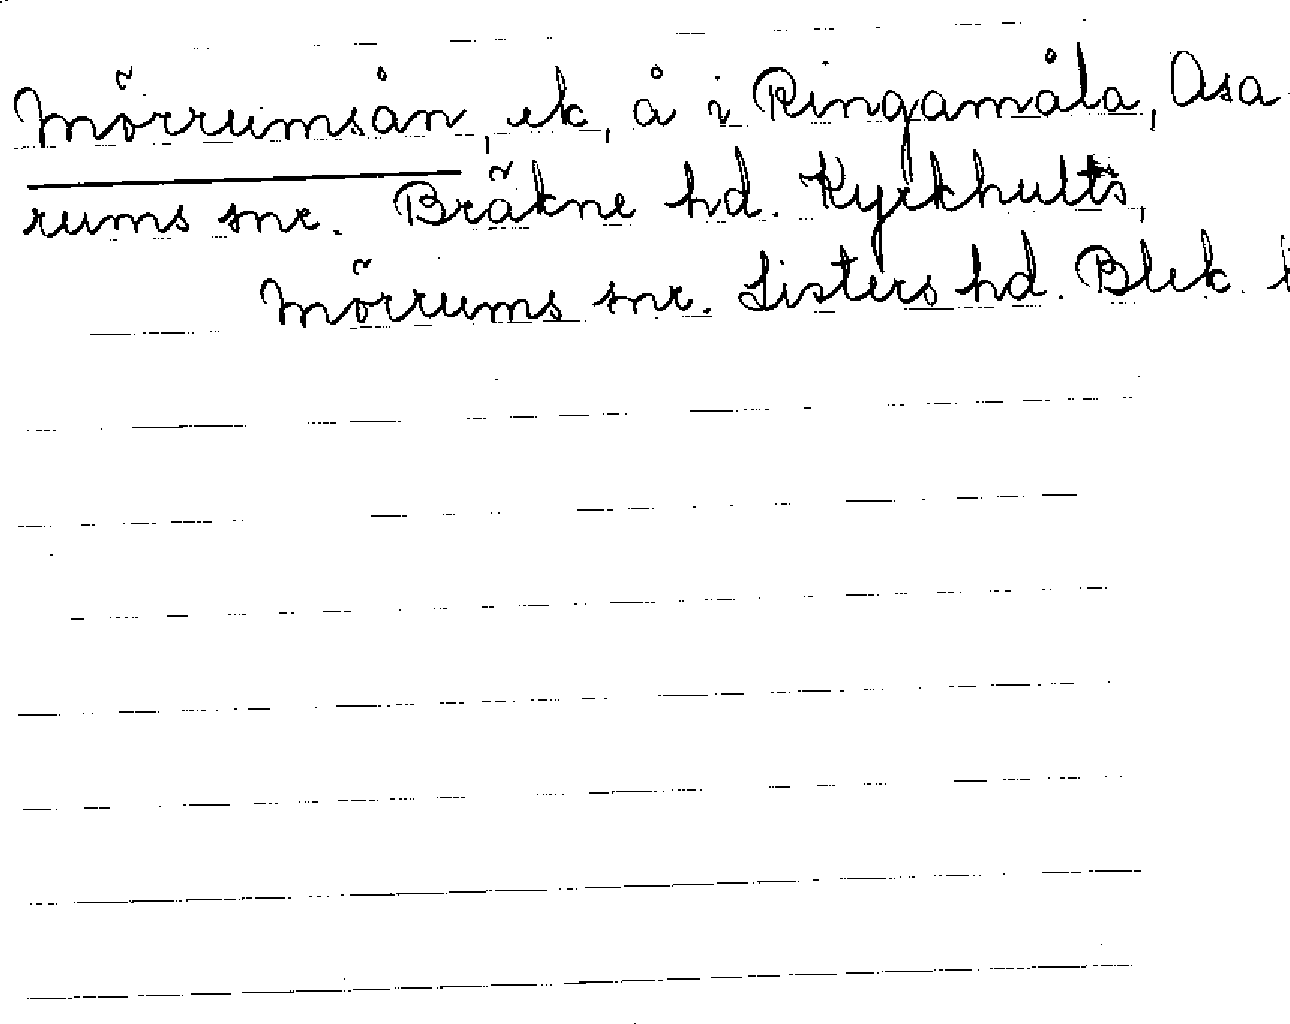 Mörrumsån, ek, å i Ringamåla, Asa
rums snr. Bräkne hd. Kyrkhults,
Mörrums snr. Listers hd. Blek. l